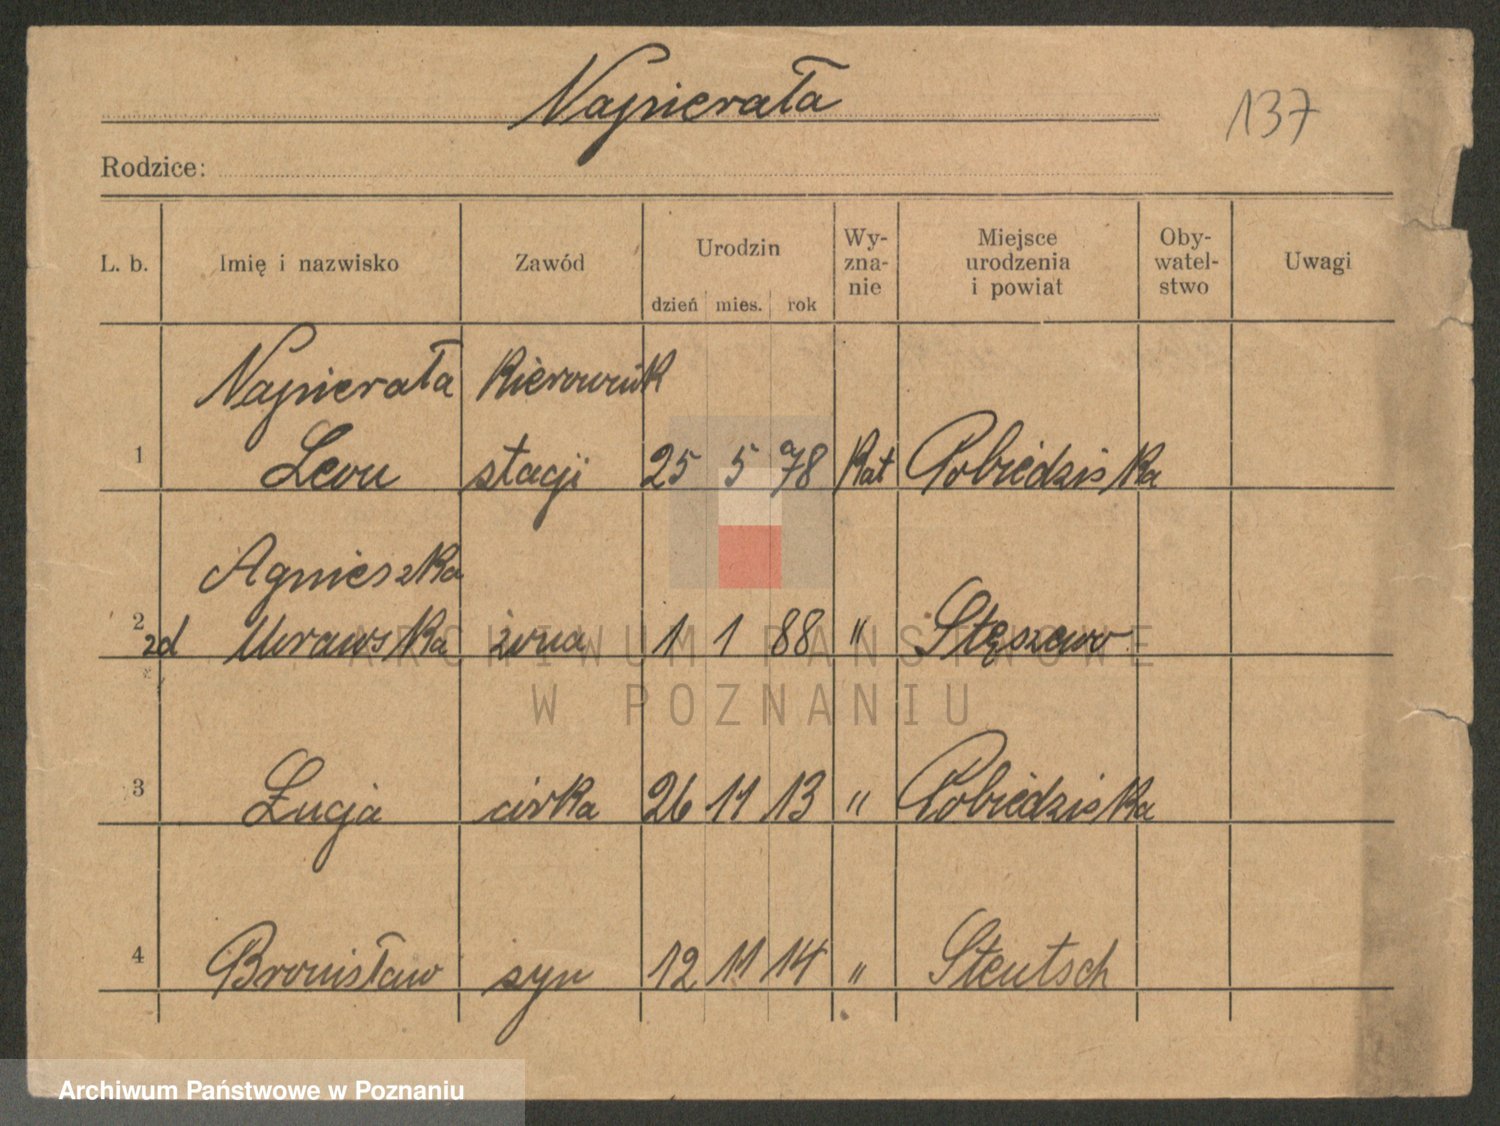 Napierała
137
Rodzice:
L. b. Imię i nazwisko Zawód Urodzin Wy-zna-nie Miejsce urodzenia i powiat Oby-watel-stwo Uwagi
dzień mies. rok
Napierała Kierownik
1 Leon stacji 25 5 78 Kat Pobiedziska
Agnieszka
2 zd Murawska żona 1 1 88 " Stęszewo
3 Łucja córka 26 11 13 " Pobiedziska
4 Bronisław syn 12 11 14 " Stentsch
ARCHIWUM PAŃSTWOWE
W POZNANIU
Archiwum Państwowe w Poznaniu